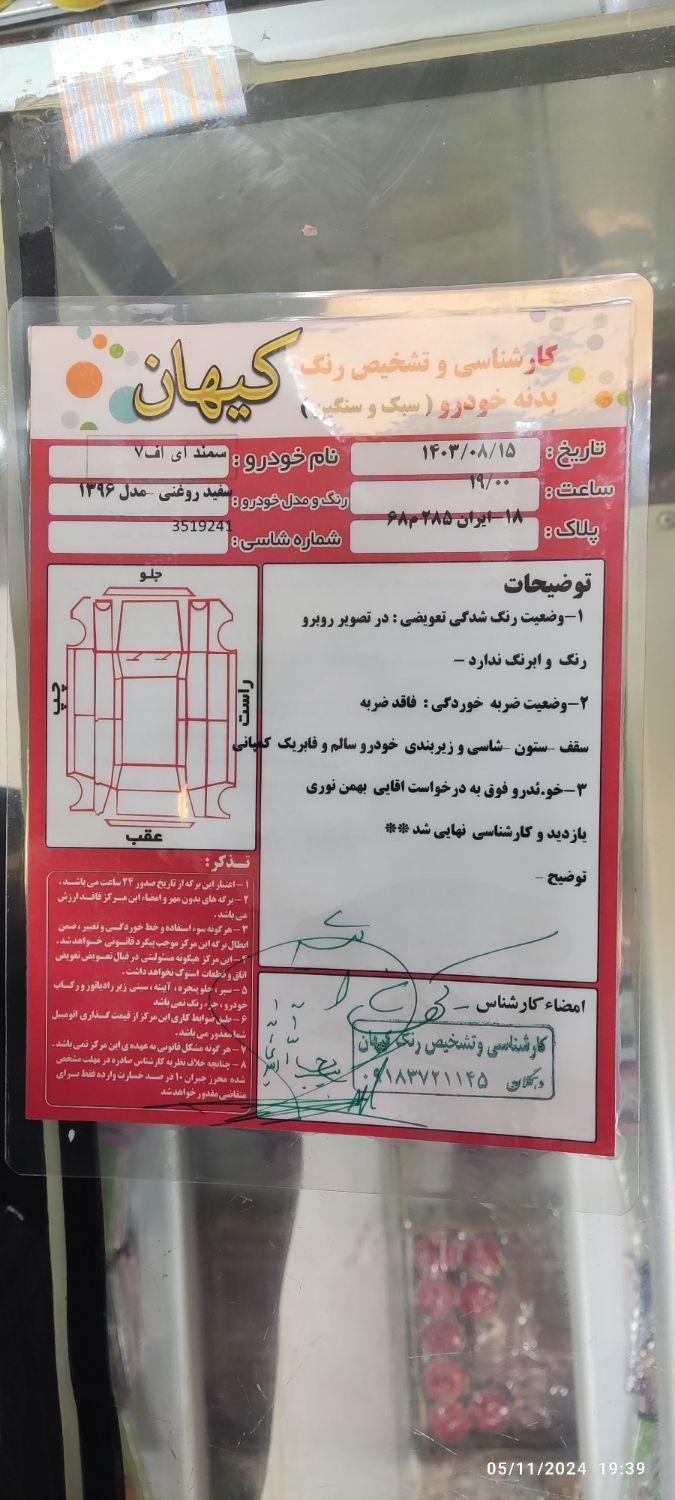 کارشناسی و تشخیص رنگ
بدنه خودرو ( سبک و سنگین )
کیهان
تاریخ : ۱۴۰۳/۰۸/۱۵
نام خودرو : سمند ای اف۷
ساعت : ۱۹/۰۰
رنگ و مدل خودرو : سفید روغنی -مدل ۱۳۹۶
پلاک : ۱۸-ایران ۲۸۵ م۶۸
شماره شاسی : 3519241
توضیحات
۱-وضعیت رنگ شدگی تعویضی : در تصویر روبرو
رنگ و ابرنگ ندارد -
۲-وضعیت ضربه خوردگی : فاقد ضربه
سقف -ستون -شاسی و زیربندی خودرو سالم و فابریک کمپانی
۳-خو.ئدرو فوق به درخواست اقایی بهمن نوری
یازدید و کارشناسی نهایی شد **
توضیح -
جلو
چپ
راست
عقب
تذکر:
۱- اعتبار این برگه از تاریخ صدور ۲۴ ساعت می باشد .
۲- برگه های بدون مهر و امضاء این مرکز فاقد ارزش
می باشد .
۳- هرگونه سوء استفاده و خط خوردگی و تغییر ، ضمن
ابطال برگه این مرکز موجب پیگرد قانونی خواهد شد .
۴- این مرکز هیگونه مسئولیتی در قبال تعویض تعویض
اتاق و قطعات استوک نخواهد داشت .
۵- سپر ، جلو پنجره ، آیینه ، سینی زیر رادیاتور و رکاب
خودرو ، جزء رنگ نمی باشد
۶- طبق ضوابط کاری این مرکز از قیمت گذاری اتومبیل
شما معذور می باشد .
۷- هرگونه مشکل قانونی به عهده ی این مرکز نمی باشد .
۸- چنانچه خلاف نظریه کارشناس صادره در مهلت مشخص
شده محرز جبران ۱۰ در صد خسارت وارده فقط برای
متقاضی مقدور خواهد شد
امضاء کارشناس -
کارشناسی و تشخیص رنگ کیهان
۰۹۱۸۳۷۲۱۱۴۵
05/11/2024 19:39